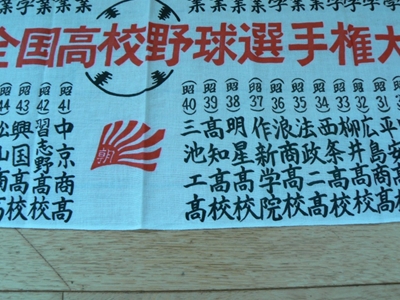 全国高校野球選手権大
昭31 平安高
昭32 広島商高
昭33 柳井高校
昭34 西条高校
昭35 法政二高校
昭36 浪商高校
昭37 作新学院
昭38 明星高校
昭39 高知高校
昭40 三池工高
朝
昭41 中京商高
昭42 習志野高校
昭43 興国高校
昭44 松山商高